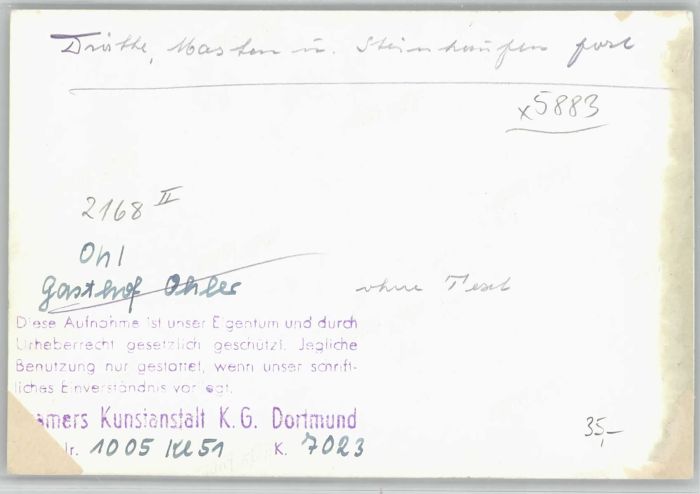 Drähte, Masten u. Steinhaufen fort
x5883
2168 II
Ohl
Gasthof Ohler
ohne Text
Diese Aufnahme ist unser Eigentum und durch
Urheberrecht gesetzlich geschützt. Jegliche
Benutzung nur gestattet, wenn unser schrift-
liches Einverständnis vorliegt.
ramers Kunstanstalt K.G. Dortmund
Nr. 1005 Kl51 K. 7023
35,-